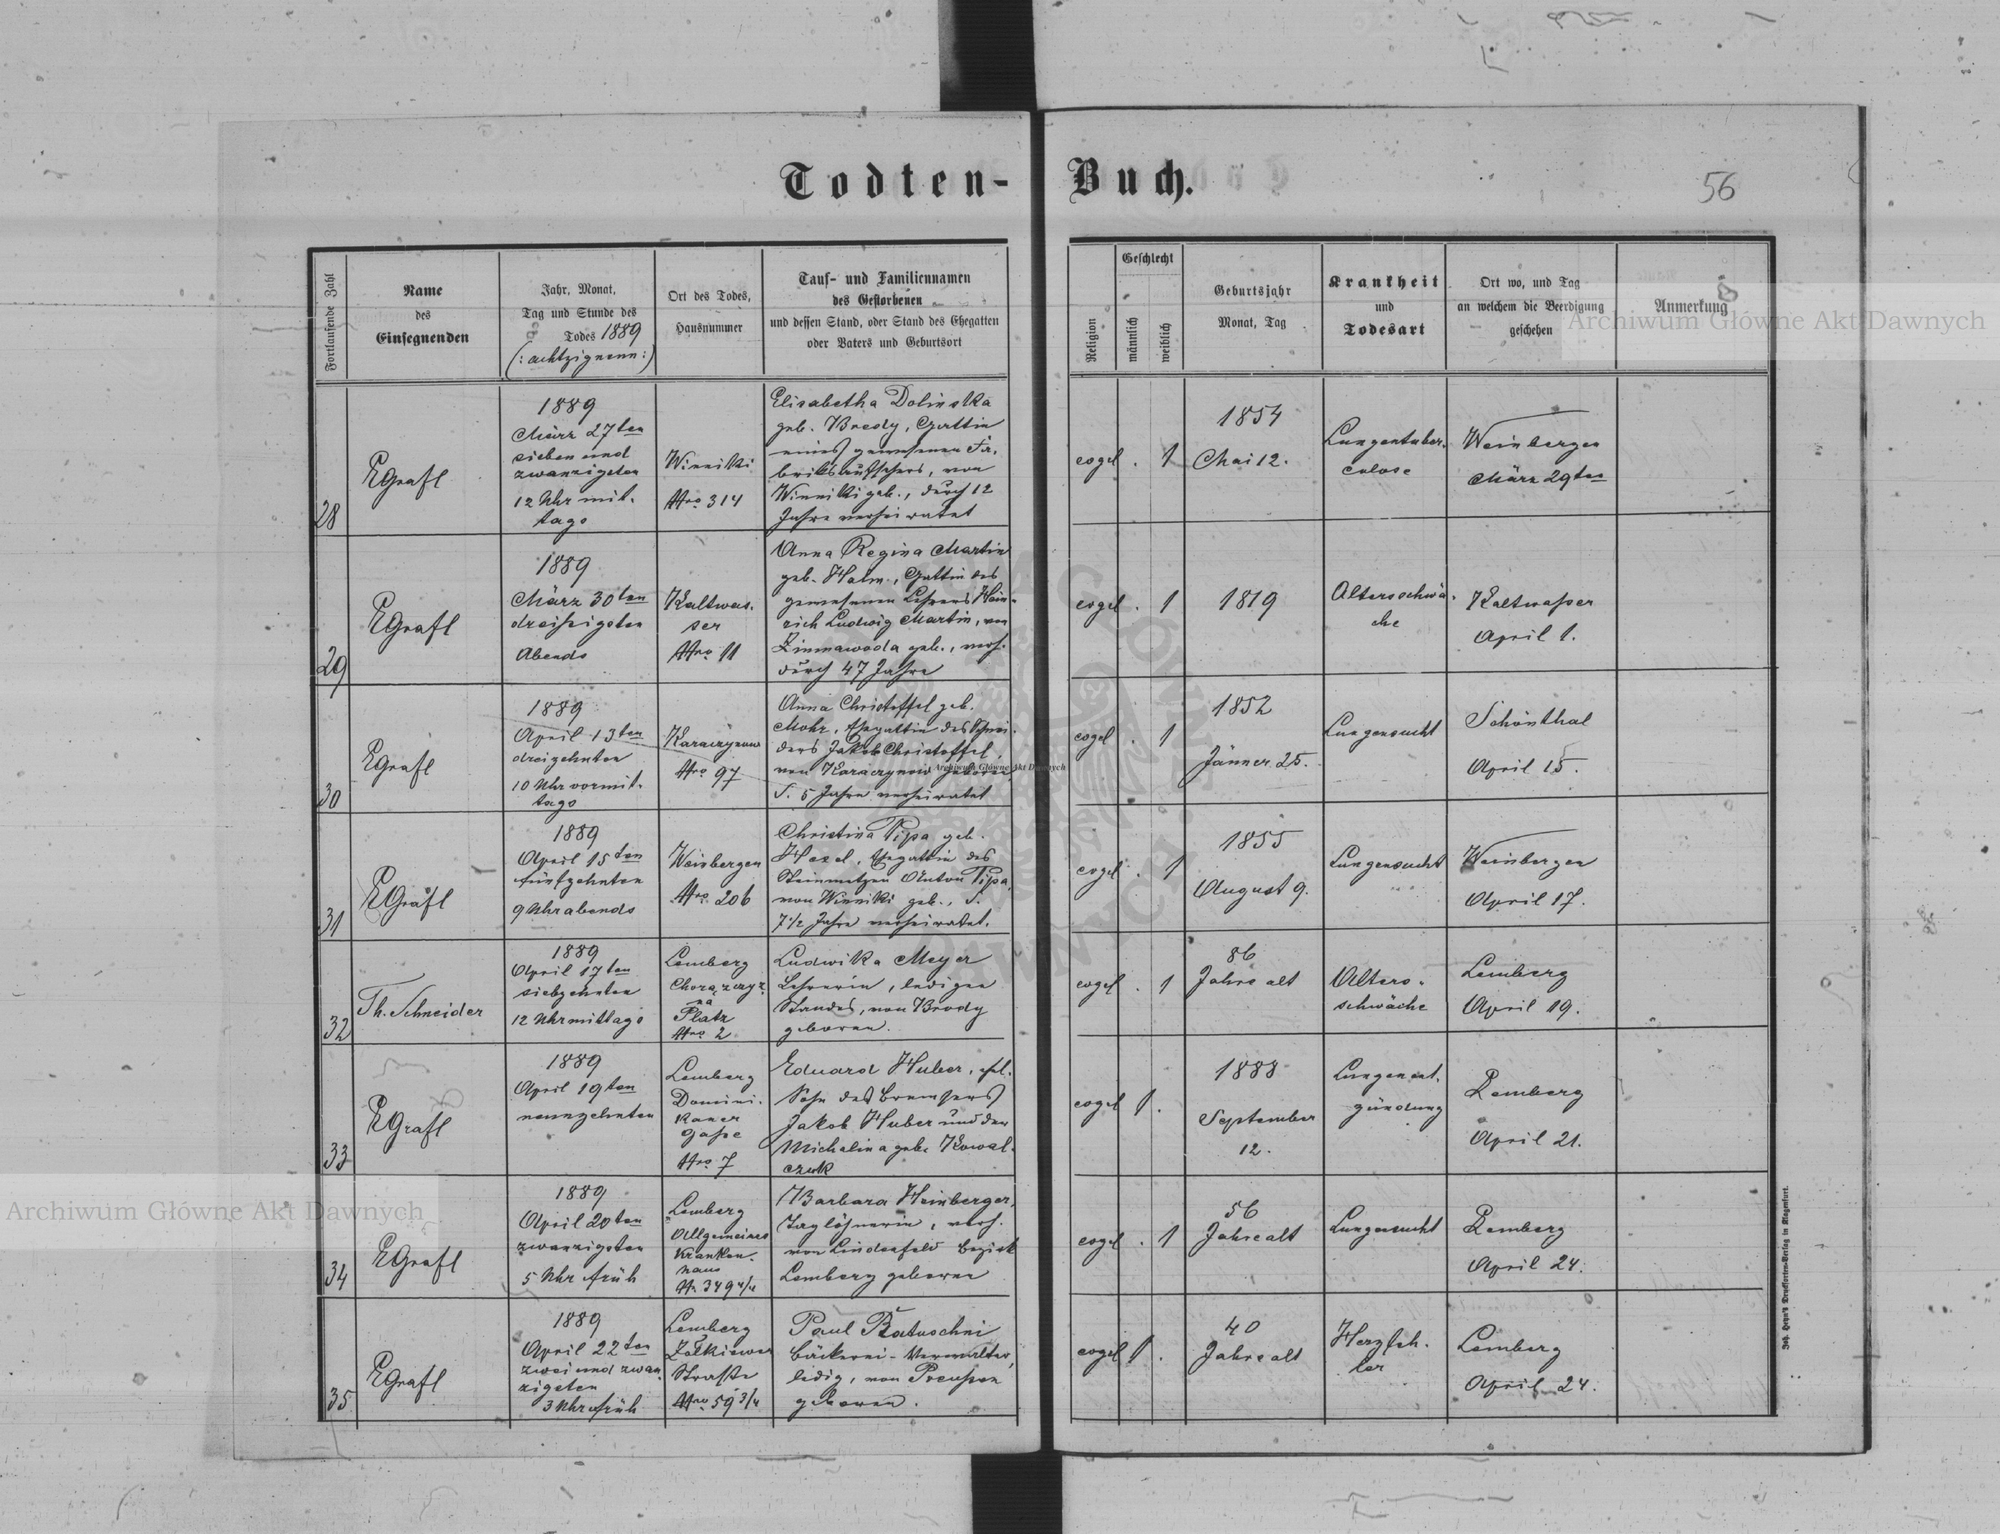 Todten-Buch.
56
Fortlaufende Zahl
Name
des
Einsegnenden
Jahr, Monat,
Tag und Stunde des
Todes 1889
(: achtzigneun :)
Ort des Todes,
Hausnummer
Tauf- und Familiennamen
des Gestorbenen
und dessen Stand, oder Stand des Ehegatten
oder Vaters und Geburtsort
Religion
Geschlecht
männlich
weiblich
Geburtsjahr
Monat, Tag
Krankheit
und
Todesart
Ort wo, und Tag
an welchem die Beerdigung
geschehen
Anmerkung
Archiwum Główne Akt Dawnych
28
EGrafl
1889
März 27ten
sieben und
zwanzigsten
12 Uhr mit-
tags
Winniki
Nro 314
Elisabetha Dolinska
geb. Bredy, Gattin
eines gewesenen Fa-
briksaufsehers, von
Winniki geb., durch 12
Jahre verheiratet
evgel . 1
1854
Mai 12.
Lungentuber-
culose
Weinbergen
März 29ten
29
EGrafl
1889
März 30ten
dreißigsten
Abends
Kaltwas-
ser
Nro 11
Anna Regina Martin
geb. Halm, Gattin des
gewesenen Lehrers Hein-
rich Ludwig Martin, von
Zimnawoda geb., verh.
durch 47 Jahre
evgel . 1
1819
Altersschwä-
che
Kaltwaßer
April 1.
30
EGrafl
1889
April 13ten
dreizehnten
10 Uhr vormit-
tags
Karaczynow
Nro 97
Anna Christoffel geb.
Mohr, Ehegattin des Schnei-
ders Jakob Christoffel,
von Karaczynow geboren
d. 5 Jahre verheiratet
evgel . 1
1852
Jänner 25.
Lungensucht
Schönthal
April 15.
Archiwum Główne Akt Dawnych
31
EGrafl
1889
April 15ten
fünfzehnten
9 Uhr abends
Weinbergen
Nro 206
Christina Pipa geb.
Hezel, Ehegattin des
Steinmetzen Anton Pipa,
von Winniki geb., d.
7 1/2 Jahre verheiratet.
evgel . 1
1855
August 9.
Lungensucht
Weinbergen
April 17.
32
Th. Schneider
1889
April 17ten
siebzehnten
12 Uhr mittags
Lemberg
Chorązczyz-
na
Platz
Nro 2
Ludwika Meyer
Lehrerin, ledigen
Standes, von Brody
geboren.
evgel . 1
86
Jahre alt
Alters-
schwäche
Lemberg
April 19.
33
EGrafl
1889
April 19ten
neunzehnten
Lemberg
Domini-
kaner
gaße
Nro 7
Eduard Huber, ehl.
Sohn des Bremsers
Jakob Huber und der
Michalina geb. Kowal-
czuk
evgel 1 .
1888
September
12.
Lungenent-
zündung
Lemberg
April 21.
34
EGrafl
1889
April 20ten
zwanzigsten
5 Uhr früh
Lemberg
Allgemeines
Kranken-
haus
N. 349 4/4
Barbara Heinberger,
Taglöhnerin, verh.
von Lindenfeld Bezirk
Lemberg geboren
evgel . 1
56
Jahre alt
Lungensucht
Lemberg
April 24.
Archiwum Główne Akt Dawnych
35
EGrafl
1889
April 22ten
zwei und zwan-
zigsten
3 Uhr früh
Lemberg
Zółkiewer
Straße
Nro 59 3/4
Paul Batuschni
Bäckerei-Verwalter,
ledig, von Preußen
geboren.
evgel 1 .
40
Jahre alt
Herzfeh-
ler
Lemberg
April 24.